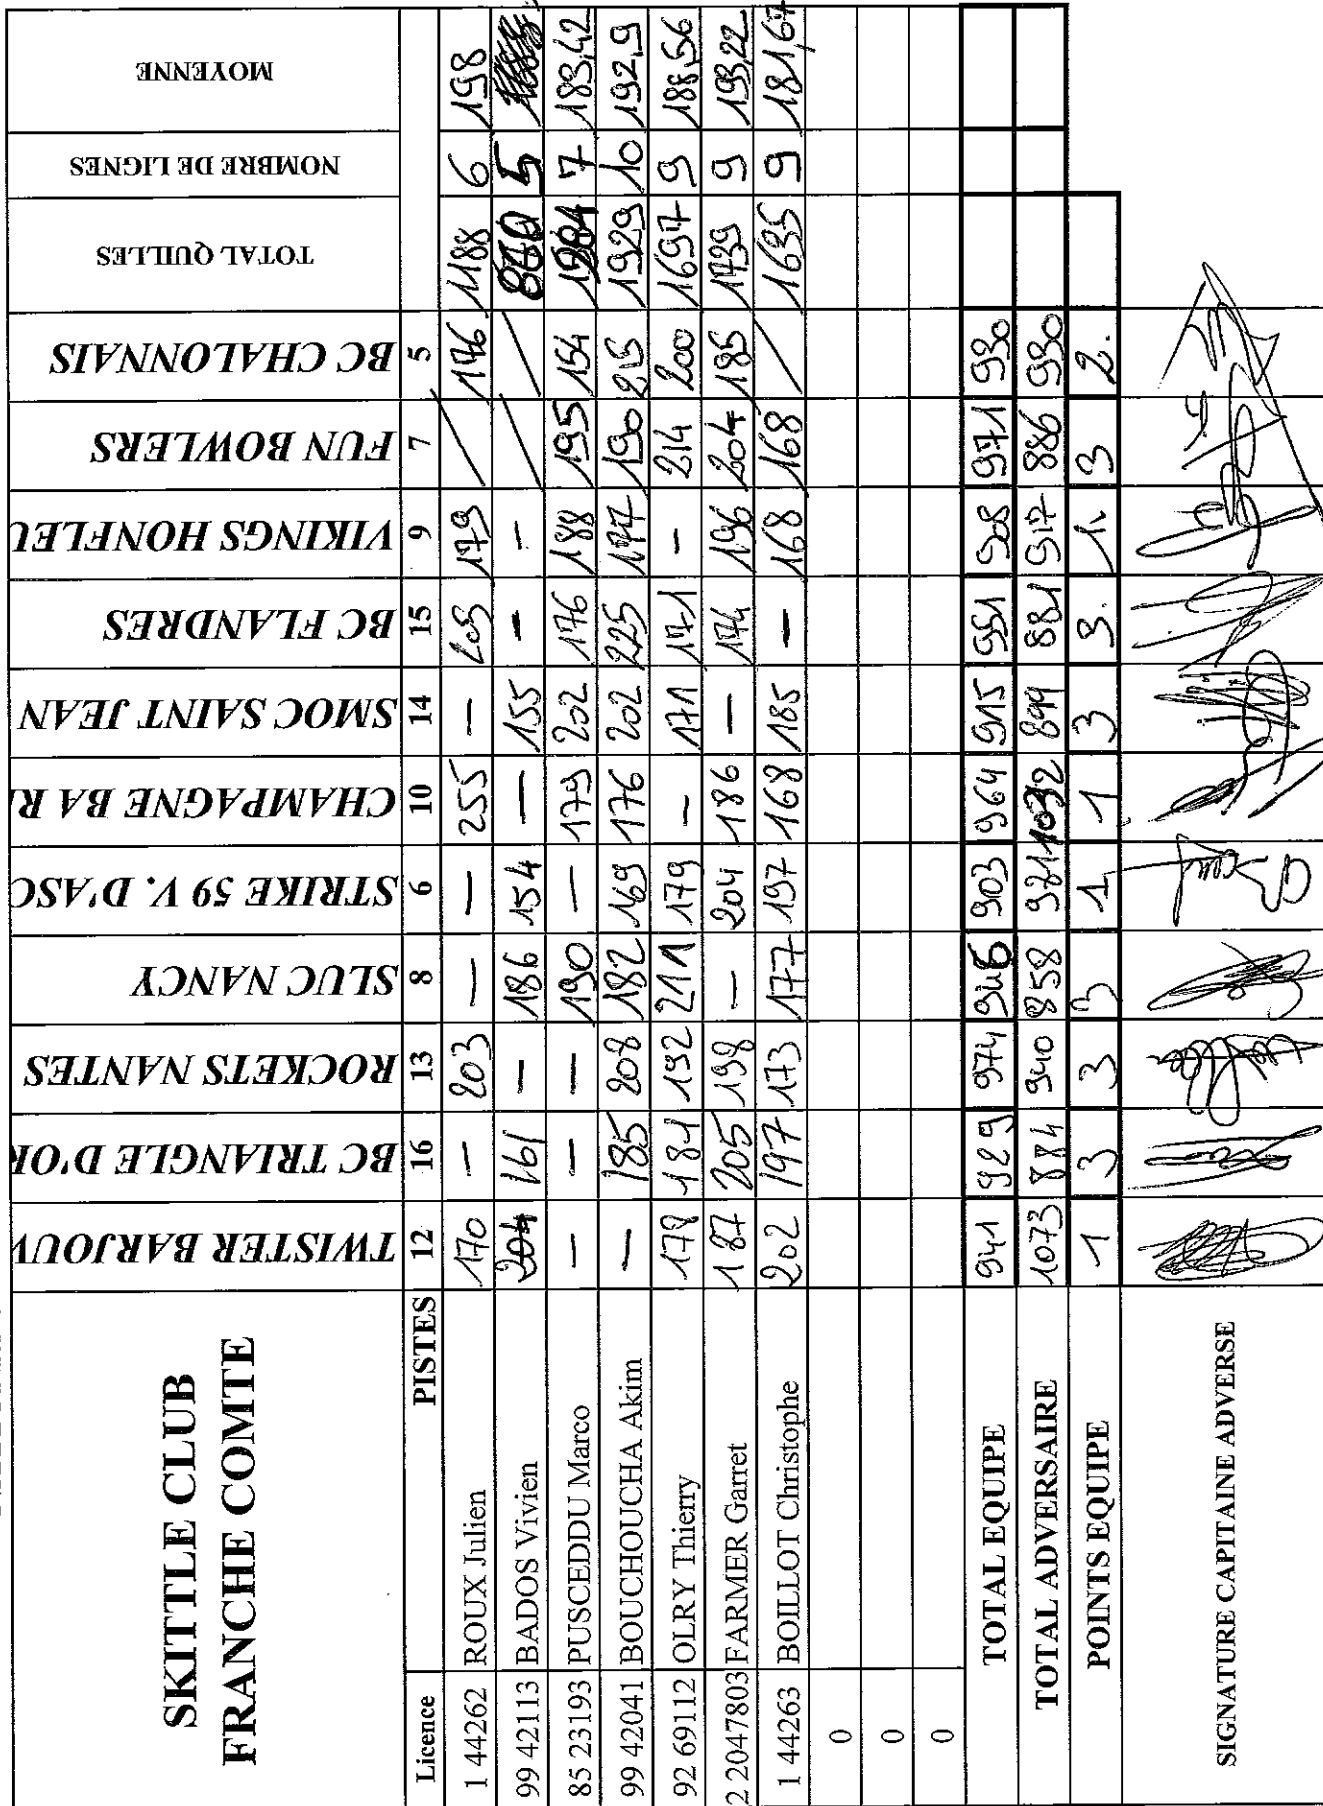 SKITTLE CLUB
FRANCHE COMTE
TWISTER BARJOUV
BC TRIANGLE D'OR
ROCKETS NANTES
SLUC NANCY
STRIKE 59 V. D'ASC
CHAMPAGNE BA RE
SMOC SAINT JEAN
BC FLANDRES
VIKINGS HONFLEU
FUN BOWLERS
BC CHALONNAIS
TOTAL QUILLES
NOMBRE DE LIGNES
MOYENNE
Licence PISTES 12 16 13 8 6 10 14 15 9 7 5
1 44262 ROUX Julien 170 — 203 — — 255 — 205 179 / 176 1188 6 198
99 42113 BADOS Vivien 204 161 — 186 154 — 155 — — / / 860 5
85 23193 PUSCEDDU Marco — — — 190 — 179 202 176 188 195 154 1284 7 183,42
99 42041 BOUCHOUCHA Akim — 185 208 182 169 176 202 225 177 190 215 1929 10 192,9
92 69112 OLRY Thierry 178 181 192 211 179 — 171 171 — 214 200 1697 9 188,56
2 2047803 FARMER Garret 187 205 198 — 204 186 — 174 196 204 185 1739 9 193,22
1 44263 BOILLOT Christophe 202 197 173 177 197 168 185 — 168 168 / 1635 9 181,67
0
0
0
TOTAL EQUIPE 941 929 974 946 903 964 915 951 908 971 930
TOTAL ADVERSAIRE 1073 884 940 858 921 1032 899 881 917 886 930
POINTS EQUIPE 1 3 3 3 1 1 3 3. 1. 3 2.
SIGNATURE CAPITAINE ADVERSE